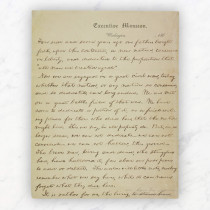 Executive Mansion,
Washington, 186
Four score and seven years ago our fathers brought
forth, upon this continent, a new nation, conceived
in liberty, and dedicated to the proposition that
"all men are created equal"
Now we are engaged in a great civil war, testing
whether that nation, or any nation so conceived,
and so dedicated, can long endure. We are met
on a great battle field of that war. We have
come to dedicate a portion of it, as a final rest-
ing place for those who died here, that the nation
might live. This we may, in all propriety do. But, in a
larger sense, we can not dedicate — we can not
consecrate — we can not hallow, this ground —
The brave men, living and dead, who struggled
here, have hallowed it, far above our poor power
to add or detract. The world will little note, nor long
remember what we say here; while it can never
forget what they did here.
It is rather for us, the living, to stand here,